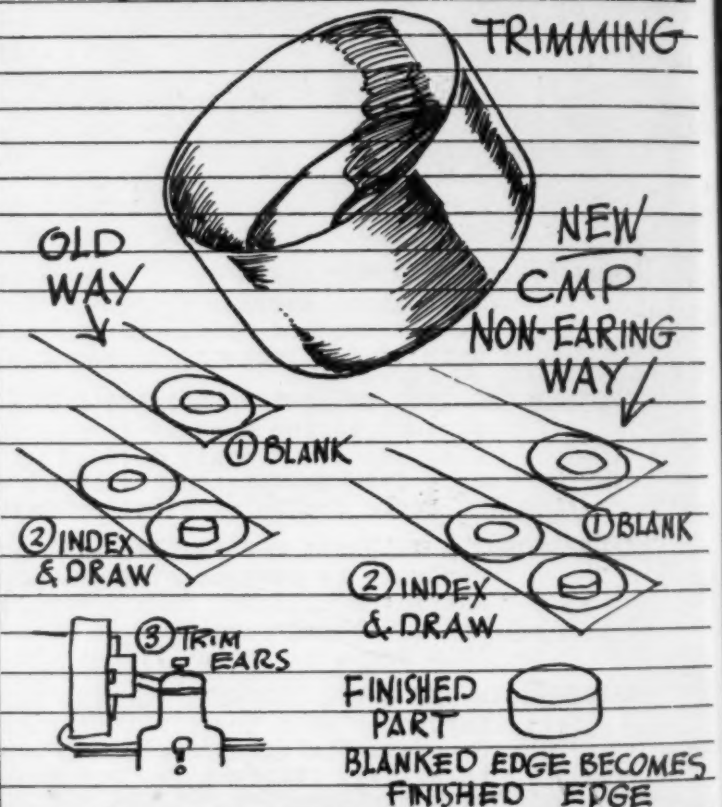 TRIMMING
OLD
WAY
NEW
CMP
NON-EARING
WAY
① BLANK
② INDEX
& DRAW
③ TRIM
EARS
① BLANK
② INDEX
& DRAW
FINISHED
PART
BLANKED EDGE BECOMES
FINISHED EDGE